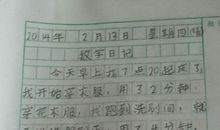 2014年 2月13日 星期四(晴)
数学日记
今天早上我7点20起床了,
我开始穿衣服,用了2分钟。
穿完衣服,我跑到洗刷间,